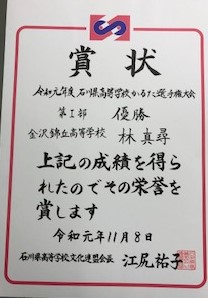 賞状
令和元年度 石川県高等学校かるた選手権大会
第Ⅰ部 優勝
金沢錦丘高等学校 林真尋
上記の成績を得ら
れたのでその栄誉を
賞します
令和元年11月8日
石川県高等学校文化連盟会長 江尻祐子